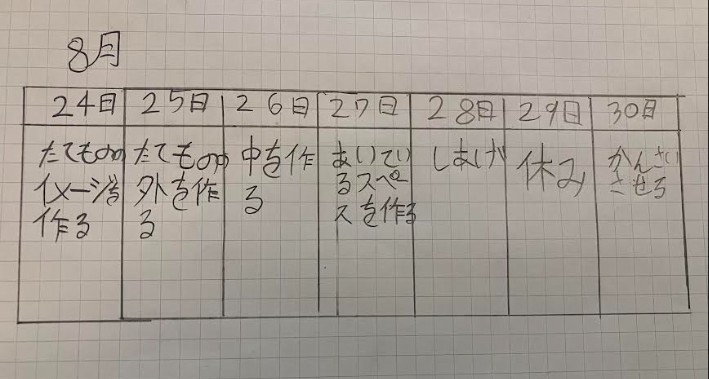 8月
24日 25日 26日 27日 28日 29日 30日
たてものの
イメージを
作る
たてものの
外を作
る
中を作
る
あいてい
るスペー
スを作る
しあげ
休み
かんさい
させる